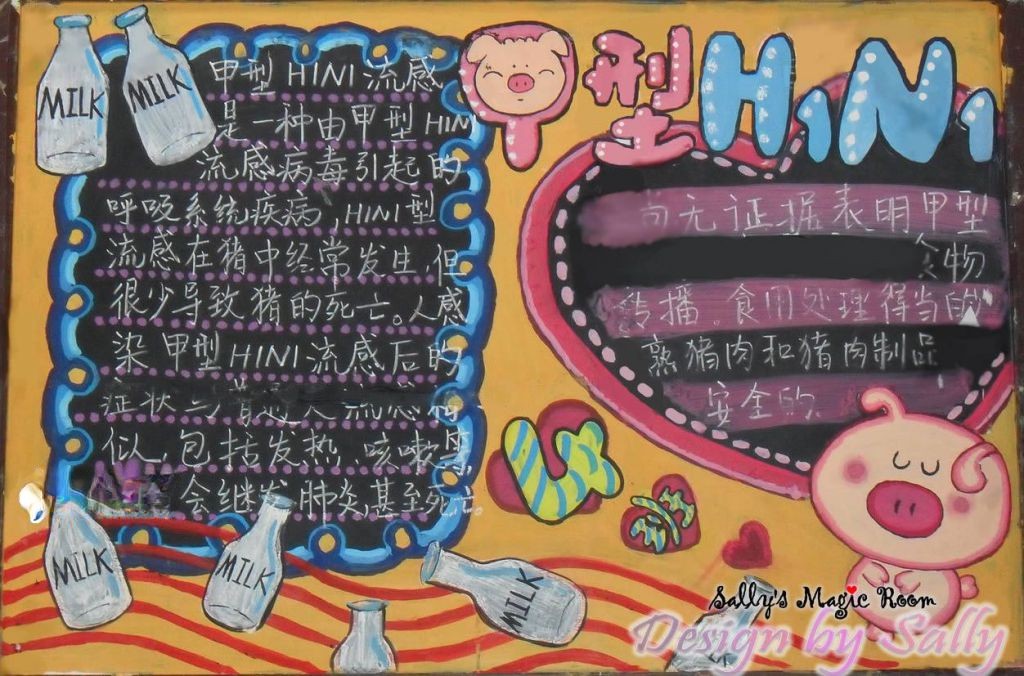 MILK
MILK
甲型H1N1流感
是一种由甲型H1N
流感病毒引起的
呼吸系统疾病,H1N1型
流感在猪中经常发生,但
很少导致猪的死亡。人感
染甲型H1N1流感后的
症状与普通人流感相
似,包括发热,咳嗽等,
会继发肺炎,甚至死亡。
甲型H1N1
尚无证据表明甲型
食物
传播。食用处理得当的
熟猪肉和猪肉制品
安全的
MILK
MILK
MILK
Sally's Magic Room
Design by Sally